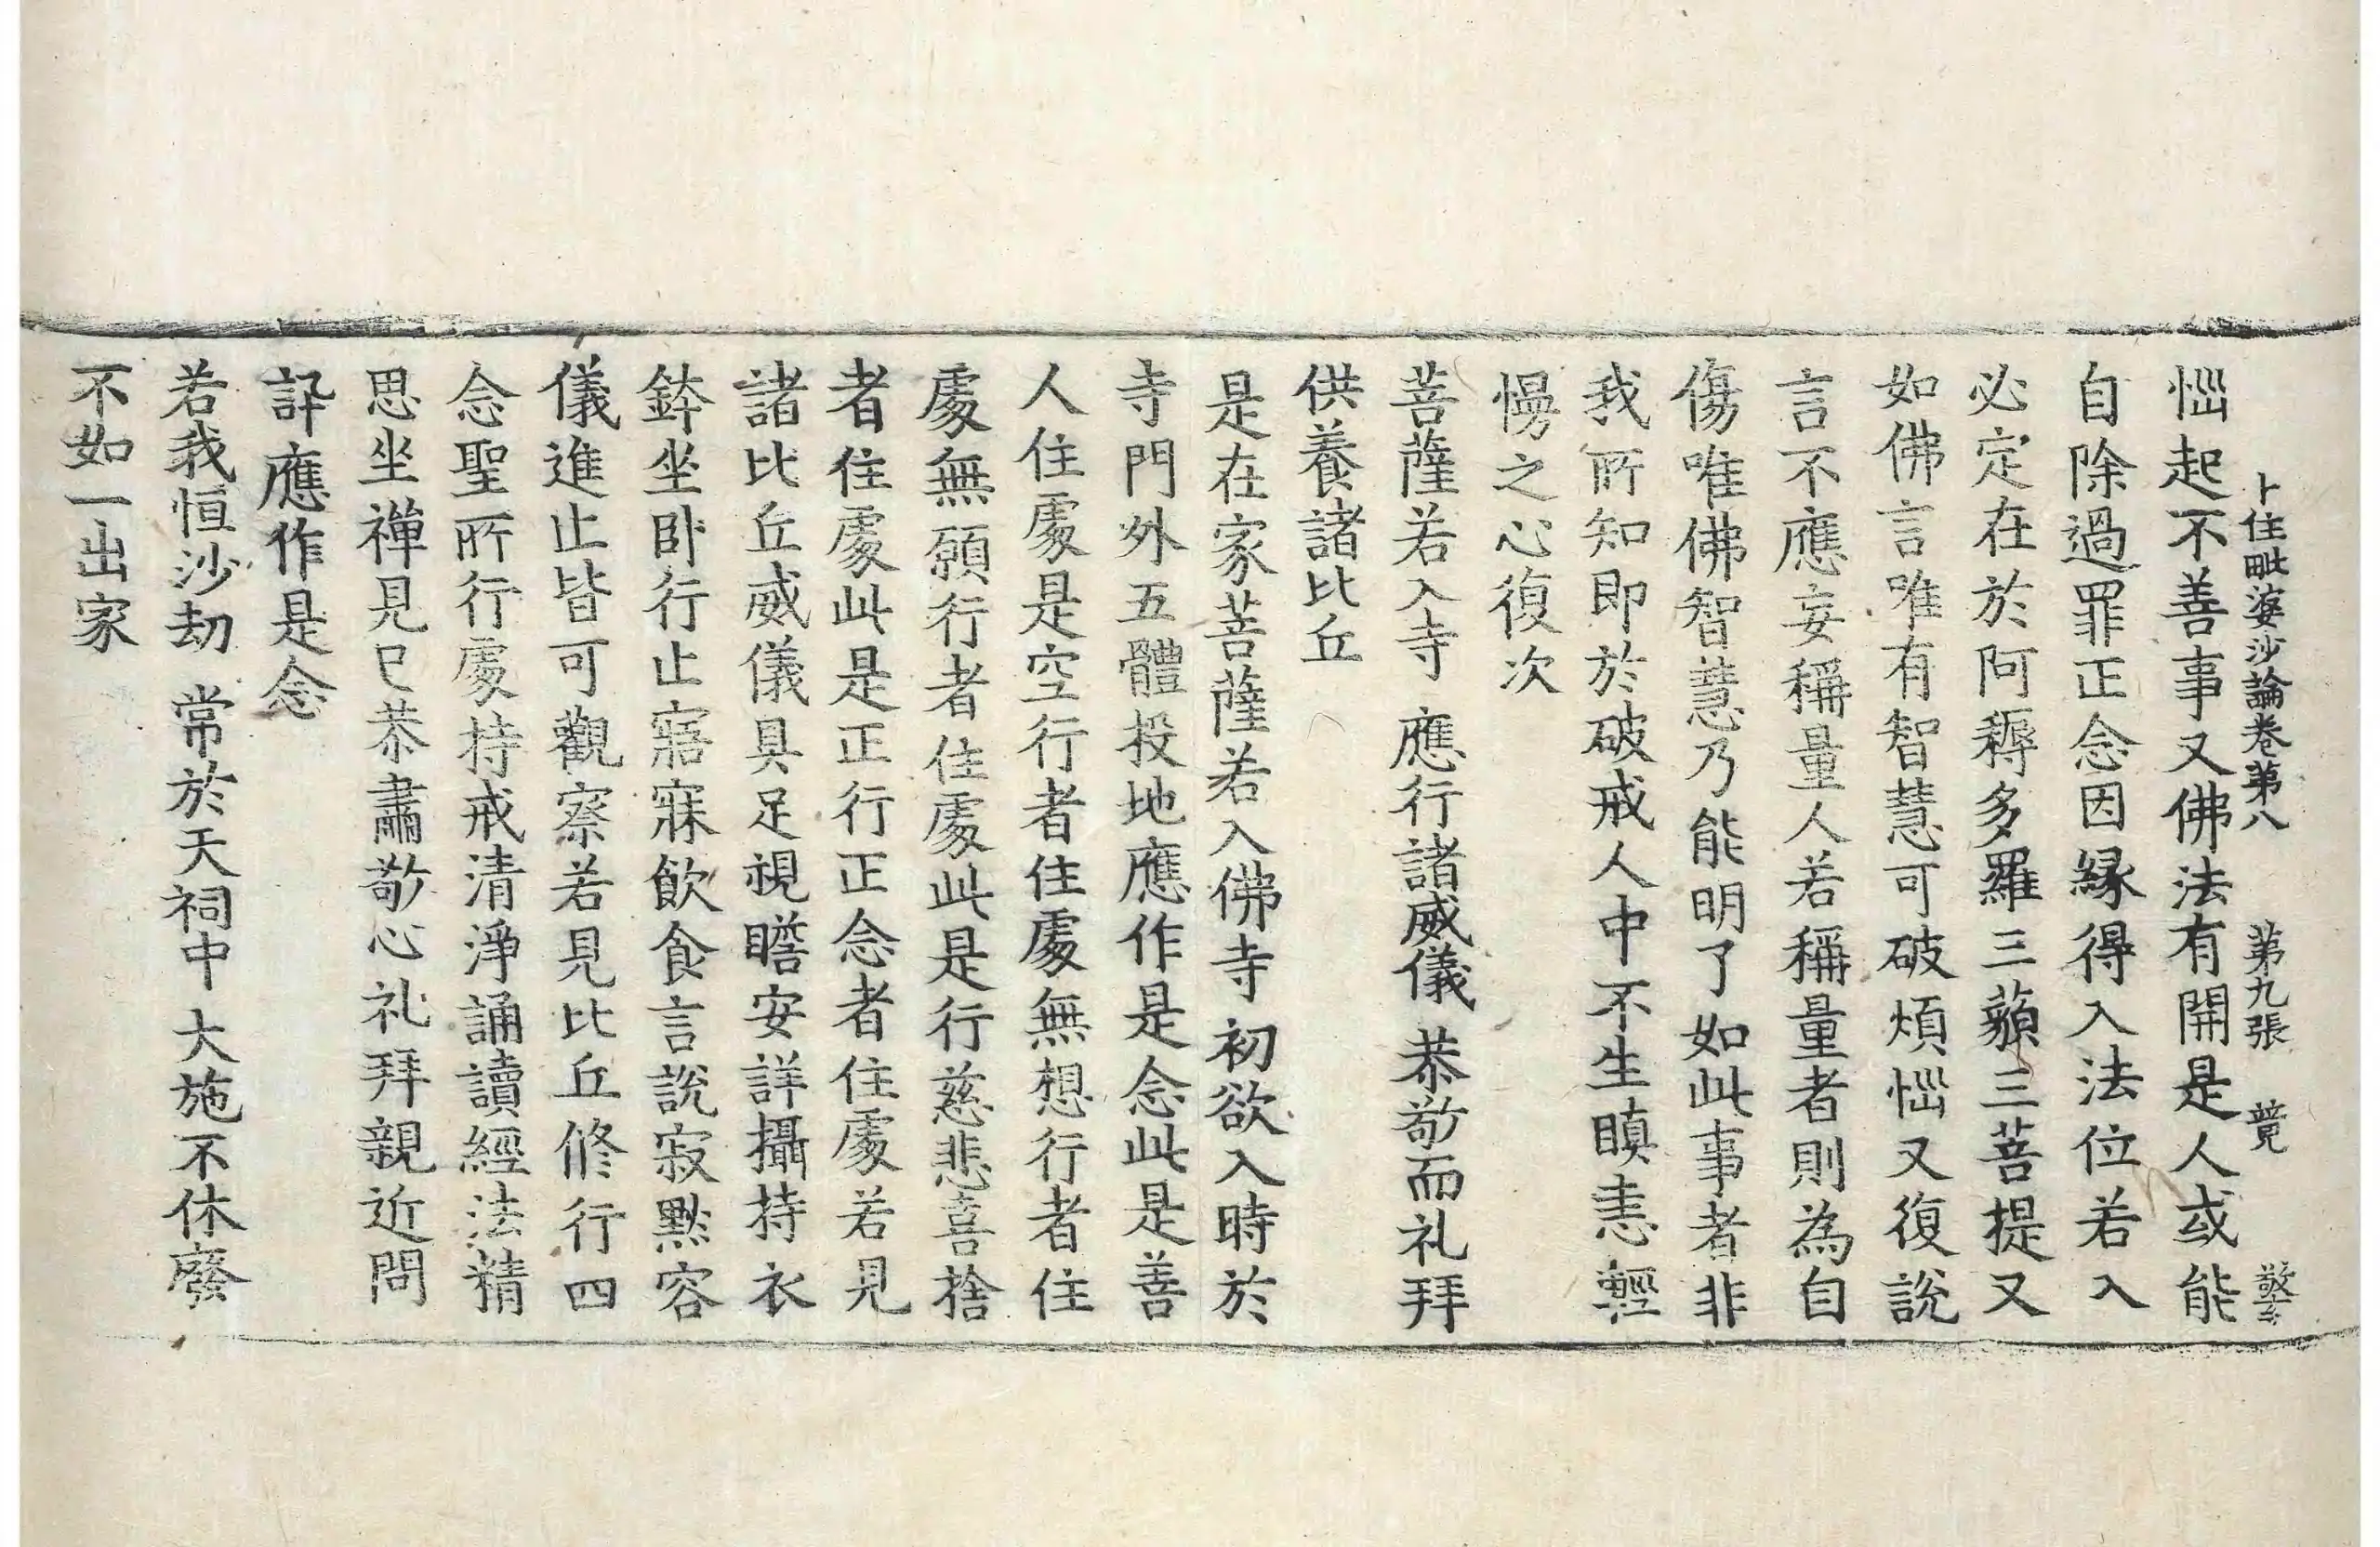 十住毗婆沙論卷第八　第九張　竟　敬
㤢起不善事又佛法有開是人或能
自除過罪正念因縁得入法位若入
必定在於阿耨多羅三藐三菩提又
如佛言唯有智慧可破煩㤢又復說
言不應妄稱量人若稱量者則為自
傷唯佛智慧乃能明了如此事者非
我所知即於破戒人中不生瞋恚輕
慢之心復次
菩薩若入寺　應行諸威儀　恭敬而礼拜
供養諸比丘
是在家菩薩若入佛寺初欲入時於
寺門外五體投地應作是念此是善
人住處是空行者住處無想行者住
處無願行者住處此是行慈悲喜捨
者住處此是正行正念者住處若見
諸比丘威儀具足視瞻安詳攝持衣
鉢坐卧行止寤寐飲食言說寂默容
儀進止皆可觀察若見比丘修行四
念聖所行處持戒清淨誦讀經法精
思坐禪見已恭肅敬心礼拜親近問
訊應作是念
若我恒沙劫　常於天祠中　大施不休廢
不如一出家